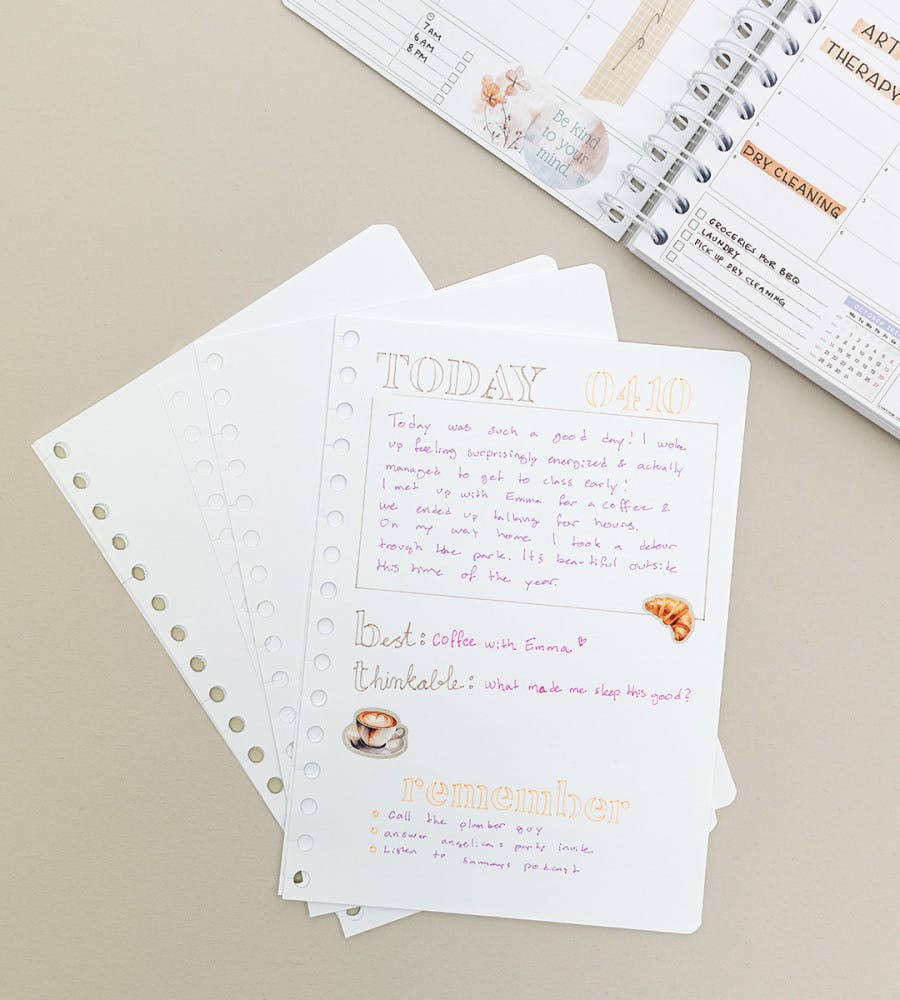 7 AM
6 AM
8 PM
Be kind
to your
mind.
ART
THERAPY
DRY CLEANING
GROCERIES FOR BBQ
LAUNDRY
PICK UP DRY CLEANING
TODAY 0410
Today was such a good day! I woke
up feeling surprisingly energized & actually
managed to get to class early!
I met up with Emma for a coffee &
we ended up talking for hours.
On my way home I took a detour
trough the park. It's beautiful outside
this time of the year.
best: coffee with Emma ♡
thinkable: what made me sleep this good?
remember
Call the plumber guy
answer angelicas party invite
Listen to Sammys podcast